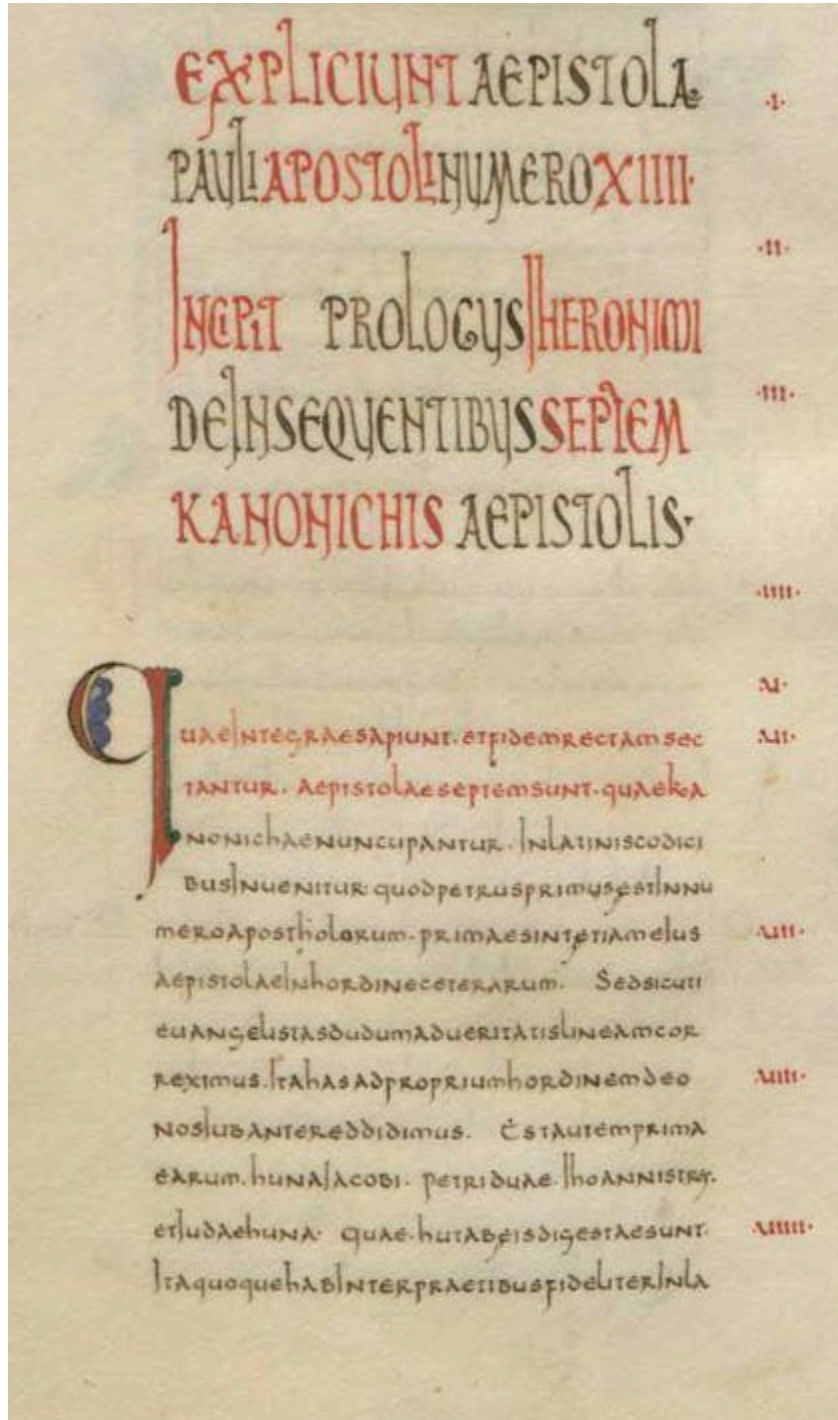 EXPLICIUNT AEPISTOLAE
PAULI APOSTOLI NUMERO XIIII·
INCIPIT PROLOGUS IHERONIMI
DE INSEQUENTIBUS SEPTEM
KANONICHIS AEPISTOLIS·
QUAE INTEGRAE SAPIUNT· ET FIDEM RECTAM SEC
TANTUR· AEPISTOLAE SEPTEM SUNT· QUAE KA
NONICHAE NUNCUPANTUR· IN LATINIS CODICI
BUS INUENITUR· QUOD PETRUS PRIMUS EST IN NU
MERO APOSTHOLORUM· PRIMAE SINT ETIAM EIUS
AEPISTOLAE IN HORDINE CETERARUM· SED SICUTI
EUANGELISTAS DUDUM AD UERITATIS LINEAM COR
REXIMUS· ITA HAS AD PROPRIUM HORDINEM DEO
NOS IUBANTE REDDIDIMUS· EST AUTEM PRIMA
EARUM· HUNA IACOBI· PETRI DUAE· IHOANNIS TRES·
ET IUDAE HUNA· QUAE· HUT AB EIS DIGESTAE SUNT·
ITA QUOQUE HAB INTERPRAETIBUS FIDELITER IN LA
·I·
·II·
·III·
·IIII·
UI·
UII·
UIII·
UIIII·